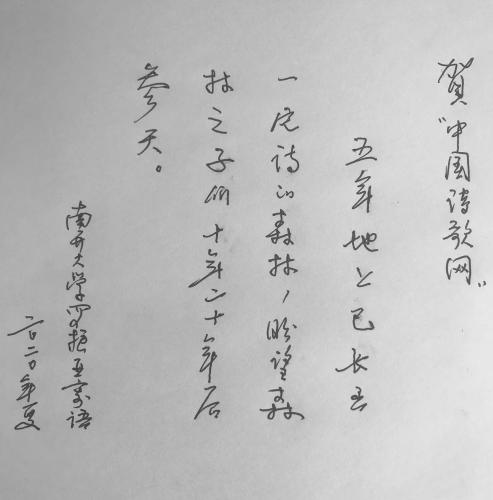 賀"中国诗歌网"
五年地上已长出
一诗的森林，盼望森
林之子们十年二十年后
参天。
南开大学罗振亚寄语
二〇二〇年夏